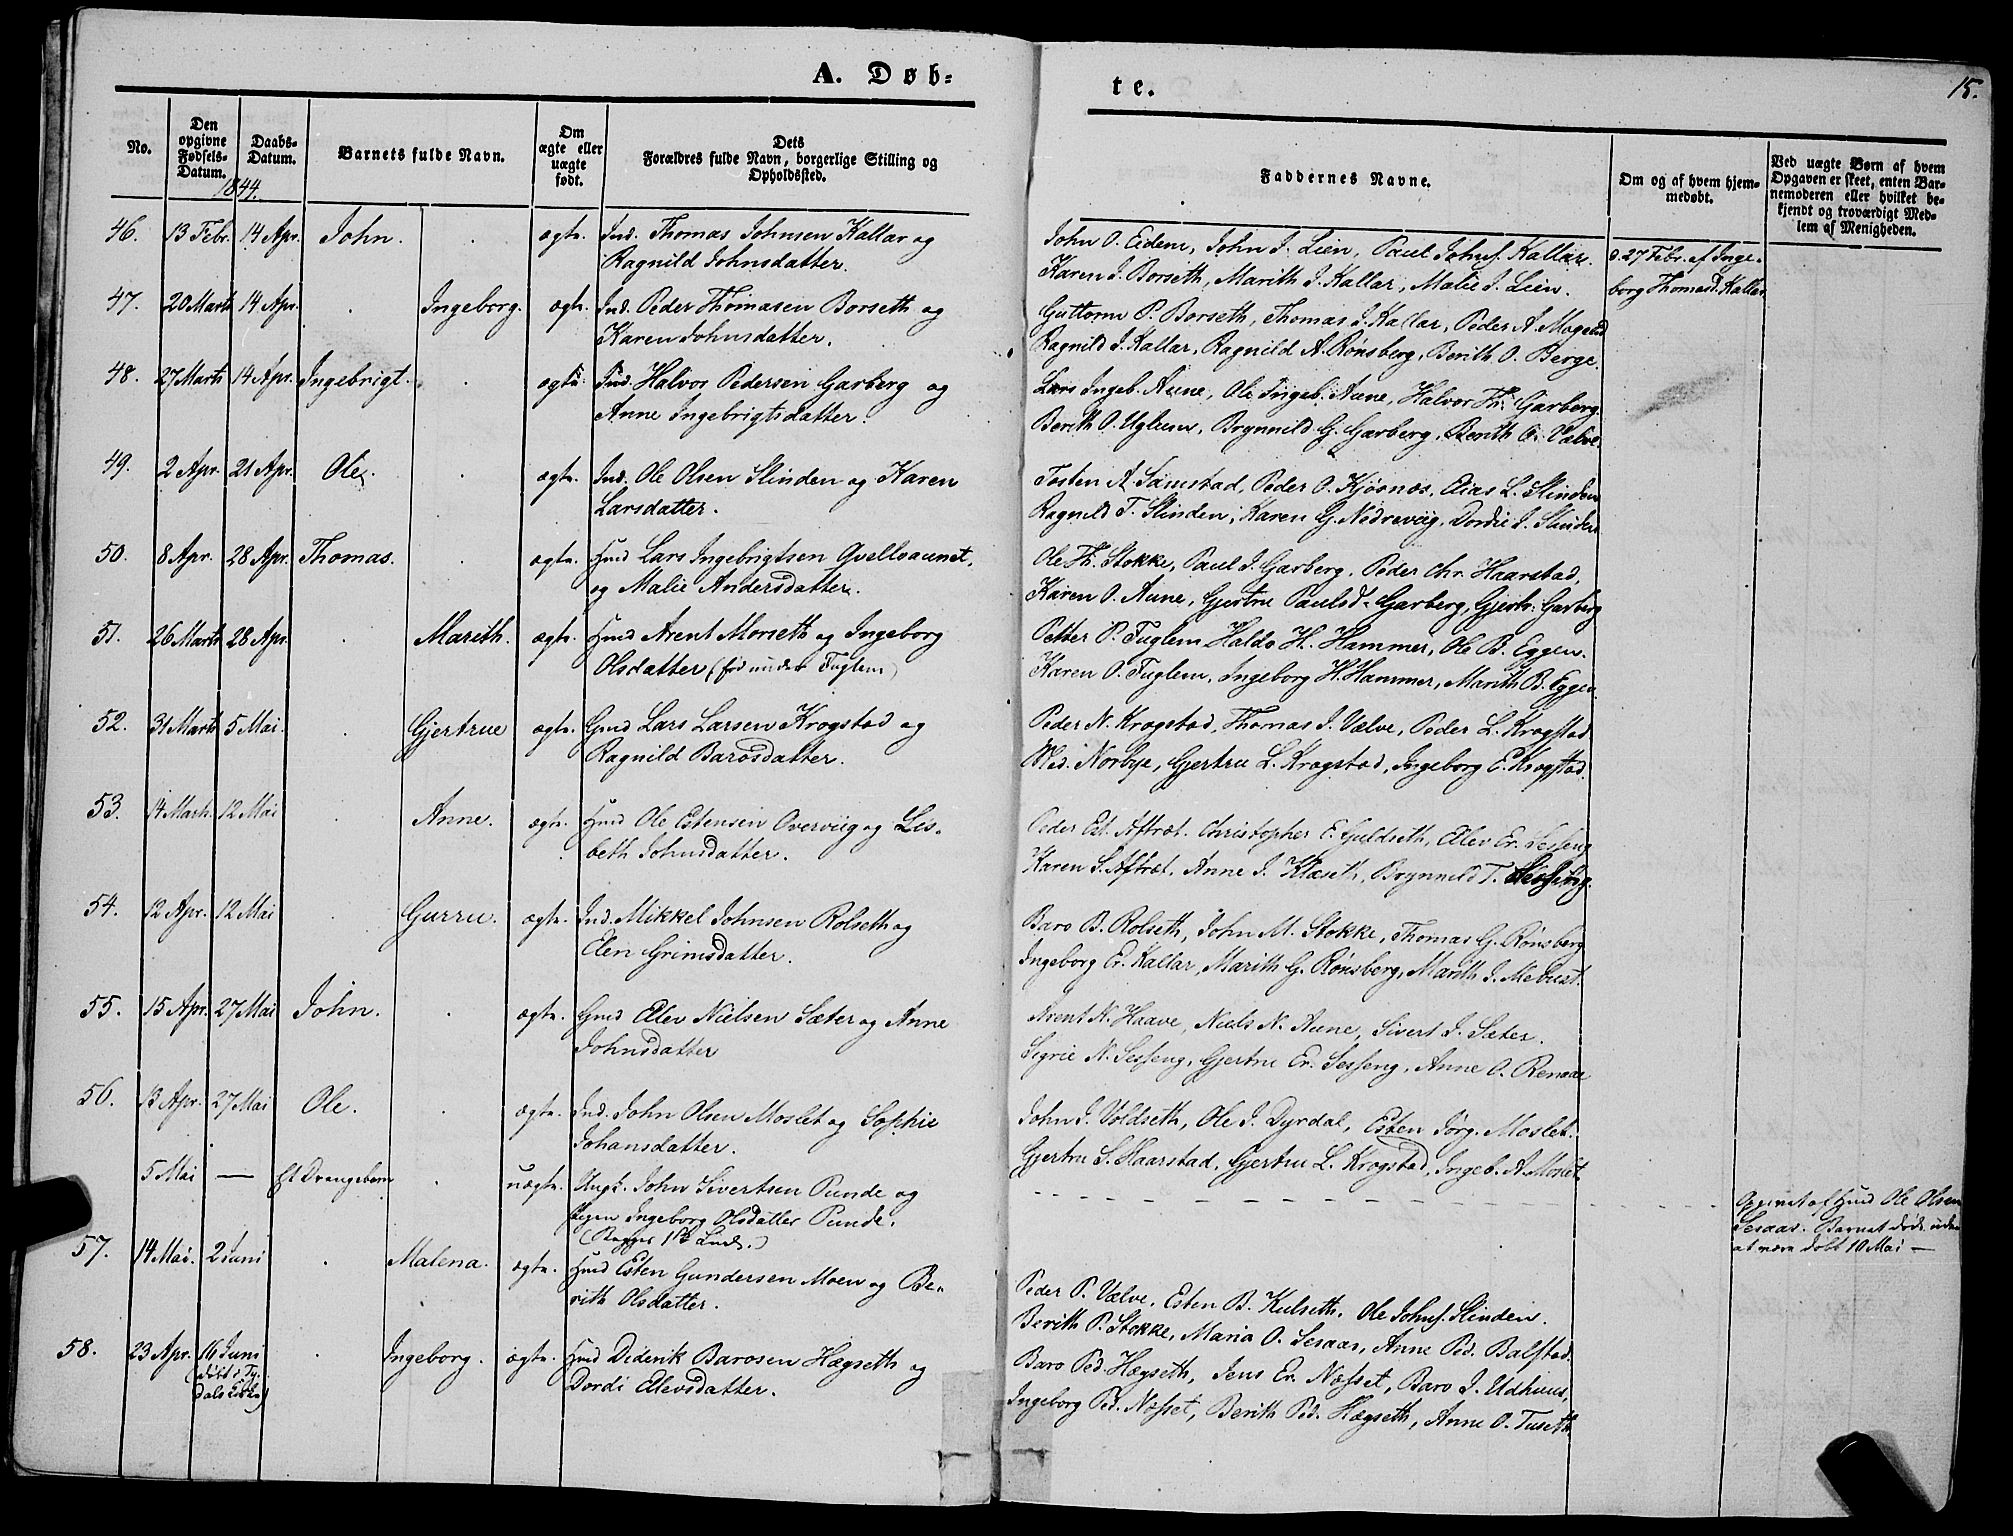 A. Døb-
te.
15.
No.
Den
opgivne
Fødsels-
Datum.
Daabs-
Datum.
Barnets fulde Navn.
Om
ægte eller
uægte
født.
Dets
Forældres fulde Navn, borgerlige Stilling og
Opholdssted.
Faddernes Navne.
Om og af hvem hjem-
medøbt.
Ved uægte Børn af hvem
Opgaven er skeet, enten Bar-
nemoderen eller hvilket be-
kjendt og troværdigt Med-
lem af Menigheden.
1844.
46. 13 Febr. 14 Apr. John. ægte. Ind. Thomas Johnsen Kallar og
Ragnild Johnsdatter.
John O. Eidem, John J. Lien, Paul Johns. Kallar.
Karen J. Borseth, Marith J. Kallar, Malie J. Lien.
d. 27 Febr. af Inge-
borg Thomasd. Kallar
47. 20 Marth 14 Apr. Ingeborg. ægte. Ind. Peder Thomasen Borseth og
Karen Johnsdatter.
Guttorm P. Borseth, Thomas J. Kallar, Peder A. Mogstad
Ragnild J. Kallar, Ragnild A. Rønsberg, Berith O. Berge.
48. 27 Marth 14 Apr. Ingebrigt. ægte. Ind. Halvor Pedersen Garberg og
Anne Ingebrigtsdatter.
Lars Ingeb. Aune, Ole Ingeb. Aune, Halvor Th. Garberg.
Berith O. Uglum, Brynnild G. Garberg, Berith O. Vælve.
49. 2 Apr. 21 Apr. Ole. ægte. Ind. Ole Olsen Slinden og Karen
Larsdatter.
Tosten A. Samstad, Peder O. Kjøsnæs, Elias L. Slinden
Ragnild T. Slinden, Karen G. Nedreviig, Dordie J. Slinden
50. 8 Apr. 28 Apr. Thomas. ægte. Huud Lars Ingebrigtsen Qvellvaunet,
og Malie Andersdatter.
Ole Th. Stokke, Paul J. Garberg, Peder Chr. Haarstad,
Karen O. Aune, Gjertru Paulsd. Garberg, Gjertr. Garberg
51. 26 Marth 28 Apr. Marith. ægte. Huud Arent Morseth og Ingeborg
Olsdatter (fød under Fuglem)
Petter P. Fuglem Haldo H. Hammer, Ole B. Eggen.
Karen O. Fuglem, Ingeborg H. Hammer, Marith B. Eggen
52. 31 Marth 5 Mai. Gjertrue ægte. Gmd Lars Larsen Krogstad og
Ragnild Barosdatter.
Peder N. Krogstad, Thomas J. Vælve, Peder L. Krogstad
Mad. Norbye, Gjertru L. Krogstad, Ingeborg E. Krogstad.
53. 14 Marth. 12 Mai Anne. ægte. Huud Ole Estensen Overviig og Lis-
beth Johnsdatter.
Peder Est. Aftret. Christopher E. Guldseth, Elev Er. Sesseng
Karen S. Aftret, Anne J. Klæseth, Brynnild T. Sesseng.
54. 12 Apr. 12 Mai Gurru. ægte. Ind. Mikkel Johnsen Rolseth og
Elen Grimsdatter.
Baro B. Rolseth, John M. Stokke, Thomas G. Rønsberg
Ingeborg Er. Kallar, Marith G. Rønsberg, Marith J. Mebust.
55. 15 Apr. 27 Mai John. ægte. Gmd Elev Nielsen Sæter og Anne
Johnsdatter
Arent N. Haave, Niels N. Aune, Sivert J. Sæter.
Sigrie N. Sesseng, Gjertru Er. Sesseng, Anne O. Renaae
56. 13 Apr. 27 Mai Ole. ægte. Ind. John Olsen Moslet og Sophie
Johansdatter.
John J. Voldseth, Ole J. Dyrdal, Esten Jørg. Moslet.
Gjertru S. Haarstad, Gjertru L. Krogstad, Ingeb. A. Moslet
5 Mai — Et Drengebarn uægte. Ungk. John Sivertsen Punde og
Pigen Ingeborg Olsdatter Punde.
(Begges 1ste Leierm.)
Opgivet af Huud Ole Olsen
Sesaas. Barnet døde uden
at være døbt 10 Mai —
57. 14 Mai. 2 Juni Malena. ægte. Huud Esten Gundersen Moen og Be-
rith Olsdatter.
Peder P. Vælve, Esten B. Kulseth, Ole Johns. Slinden.
Berith P. Stokke, Maria O. Sesaas, Anne Ped. Balstad.
58. 23 Apr. 16 Juni
(døbt i Ty-
dals Kirke)
Ingeborg. ægte. Huud Diderik Barosen Hægseth og
Dordi Elevsdatter.
Baro Ped. Hægseth, Jens Er. Næsset, Baro J. Udhuus,
Ingeborg Ped. Næsset, Berith Ped. Hægseth, Anne O. Tuseth.